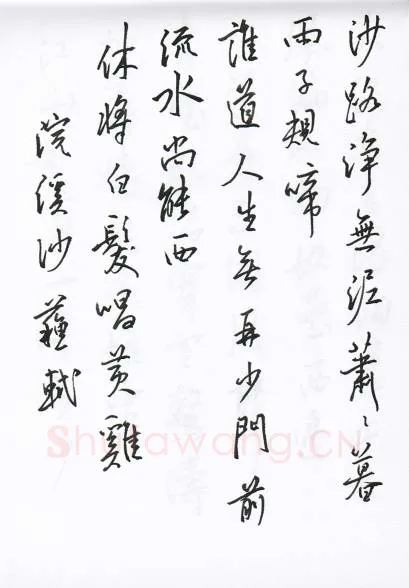 沙路净無泥蕭〻暮
雨子規啼
誰道人生無再少門前
流水尚能西
休將白髮唱黄雞
浣溪沙 蘇軾
Shufawang.CN